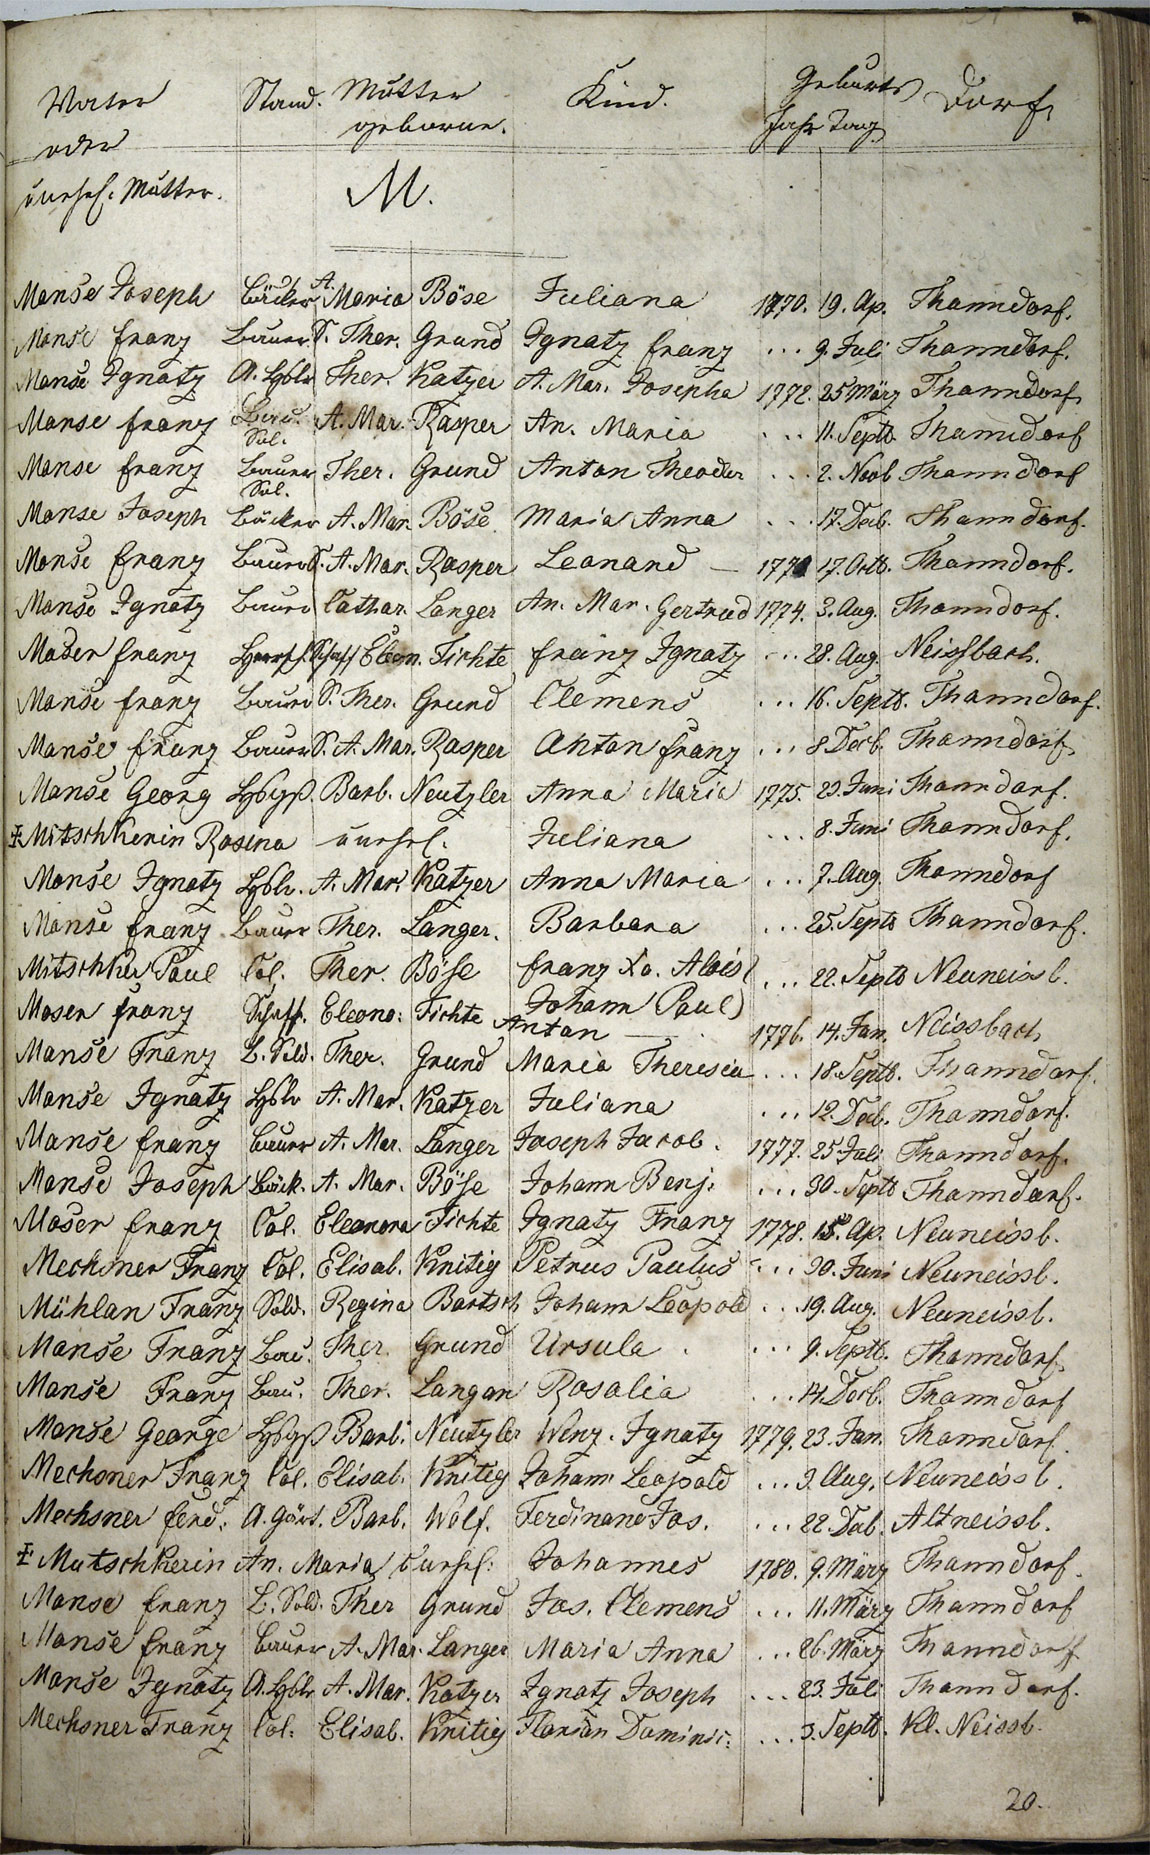 Vater Stand. Mutter Kind. Geburts Dorf.
oder geborne. Jahr Tag
unehel. Mutter. M.
Manse Joseph Bäcker A. Maria Böse Juliana 1770. 19. Ap. Thanndorf.
Manse Franz Bauer S. Ther. Grund Ignatz Franz ... 9. Juli Thanndorf.
Manse Ignatz A. Hslr Ther. Katzer A. Mar. Josepha 1772. 25 März Thanndorf
Manse Franz Bau. Sol. A. Mar. Rasper An. Maria ... 11. Septb. Thanndorf
Manse Franz Bauer Sol. Ther. Grund Anton Theodor ... 2. Novb Thanndorf
Manse Joseph Bäcker A. Mar. Böse Maria Anna ... 17. Decb. Thanndorf.
Manse Franz Bauer S. A. Mar. Rasper Leonard — 17. Octb. Thanndorf.
Manse Ignatz Bauer Cathar. Langer An. Mar. Gertrud 1774. 3. Aug. Thanndorf.
Moser Franz Herrsch. Schaff Eleon. Fichte Franz Ignatz ... 28. Aug. Neissbach.
Manse Franz Bauer S. Ther. Grund Clemens ... 16. Septb. Thanndorf.
Manse Franz Bauer S. A. Mar. Rasper Anton Franz ... 8 Decb. Thanndorf
Manse Georg Hsgß. Barb. Neutzler Anna Maria 1775. 29. Juni Thanndorf.
Mitschkerin Rosina unehel. Juliana ... 8. Juni Thanndorf.
Manse Ignatz Hslr. A. Mar. Katzer Anna Maria ... 7. Aug. Thanndorf
Manse Franz Bauer Ther. Langer. Barbara ... 25. Septb Thanndorf.
Mitschker Paul Col. Ther. Böse Franz Xa. Alois ... 22. Septb Neuneissb.
Johann Paul)
Moser Franz Schaff. Eleono: Fichte Anton — 1776. 14. Jan. Neissbach
Manse Franz B. Sold. Ther. Grund Maria Theresia ... 18. Septb. Thanndorf.
Manse Ignatz Hslr A. Mar. Katzer Juliana ... 12. Decb. Thanndorf.
Manse Franz Bauer A. Mar. Langer Joseph Jacob. 1777. 25 Juli Thanndorf.
Manse Joseph Bäck. A. Mar. Böse Johann Benj. ... 30. Septb Thanndorf.
Moser Franz Col. Eleonora Fichte Ignatz Franz 1778. 15. Ap. Neuneissb.
Mechsner Franz Col. Elisab. Knitig Petrus Paulus ... 30. Juni Neuneissb.
Mühlan Franz Sold. Regina Bartsch Johann Leopold ... 19. Aug. Neuneissb.
Manse Franz Bau. Ther. Grund Ursula ... 9. Septb. Thanndorf
Manse Franz Bau. Ther. Langer Rosalia ... 14. Decb. Thanndorf
Manse George Hsgß Barb. Neutzler Wenz. Ignatz 1779. 23. Jan. Thanndorf.
Mechsner Franz Col. Elisab. Knitig Johann Leopold ... 9. Aug. Neuneissb.
Mechsner Ferd. A. Gärt. Barb. Wolf. Ferdinand Jos. ... 22. Decb. Altneissb.
Mutschkerin An. Maria unehel: Johannes 1780. 9. März Thanndorf.
Manse Franz B. Sold. Ther Grund Jos. Clemens ... 11. März Thanndorf
Manse Franz Bauer A. Mar. Langer Maria Anna ... 26. März Thanndorf
Manse Ignatz A. Hslr A. Mar. Katzer Ignatz Joseph ... 23. Juli Thanndorf.
Mechsner Franz Col. Elisab. Knitig Florian Dominic: ... 3. Septb. Kl. Neissb.
20.